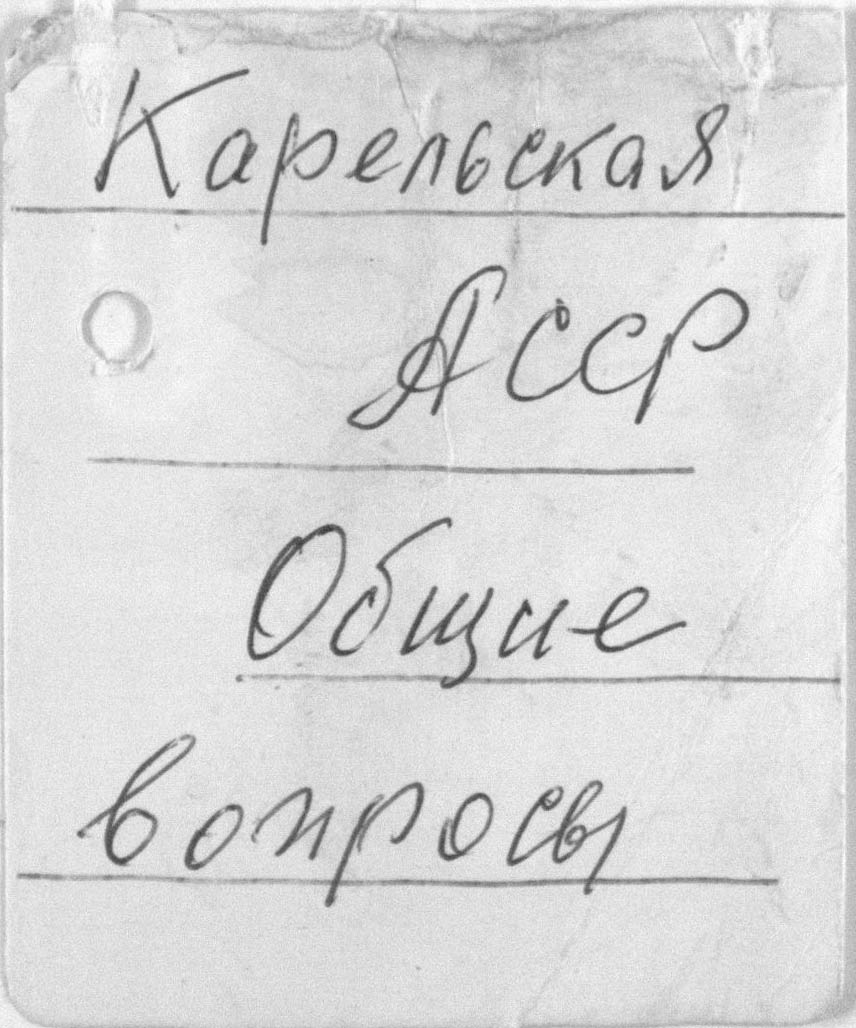 Карельская
АССР
Общие
вопросы